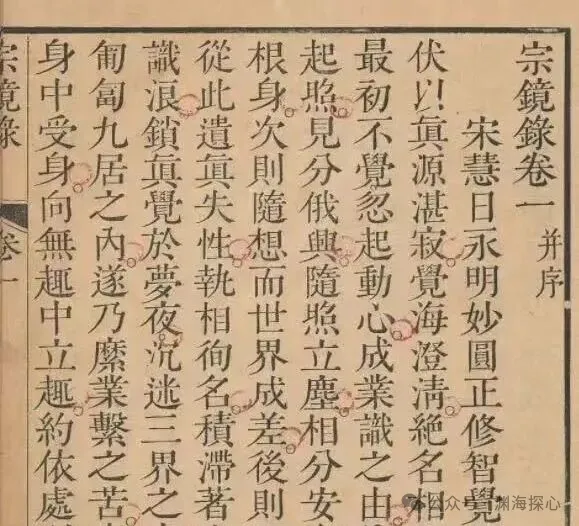 宗鏡錄卷一 并序
宋慧日永明妙圓正修智覺
伏以眞源湛寂覺海澄淸絶名相
最初不覺忽起動心成業識之由
起照見分俄興隨照立塵相分安
根身次則隨想而世界成差後則
從此遺眞失性執相徇名積滯著
識浪鎖眞覺於夢夜沉迷三界之
匍匐九居之內遂乃縻業繫之苦
身中受身向無趣中立趣約依處
宗鏡錄 卷一
公众 渊海探心